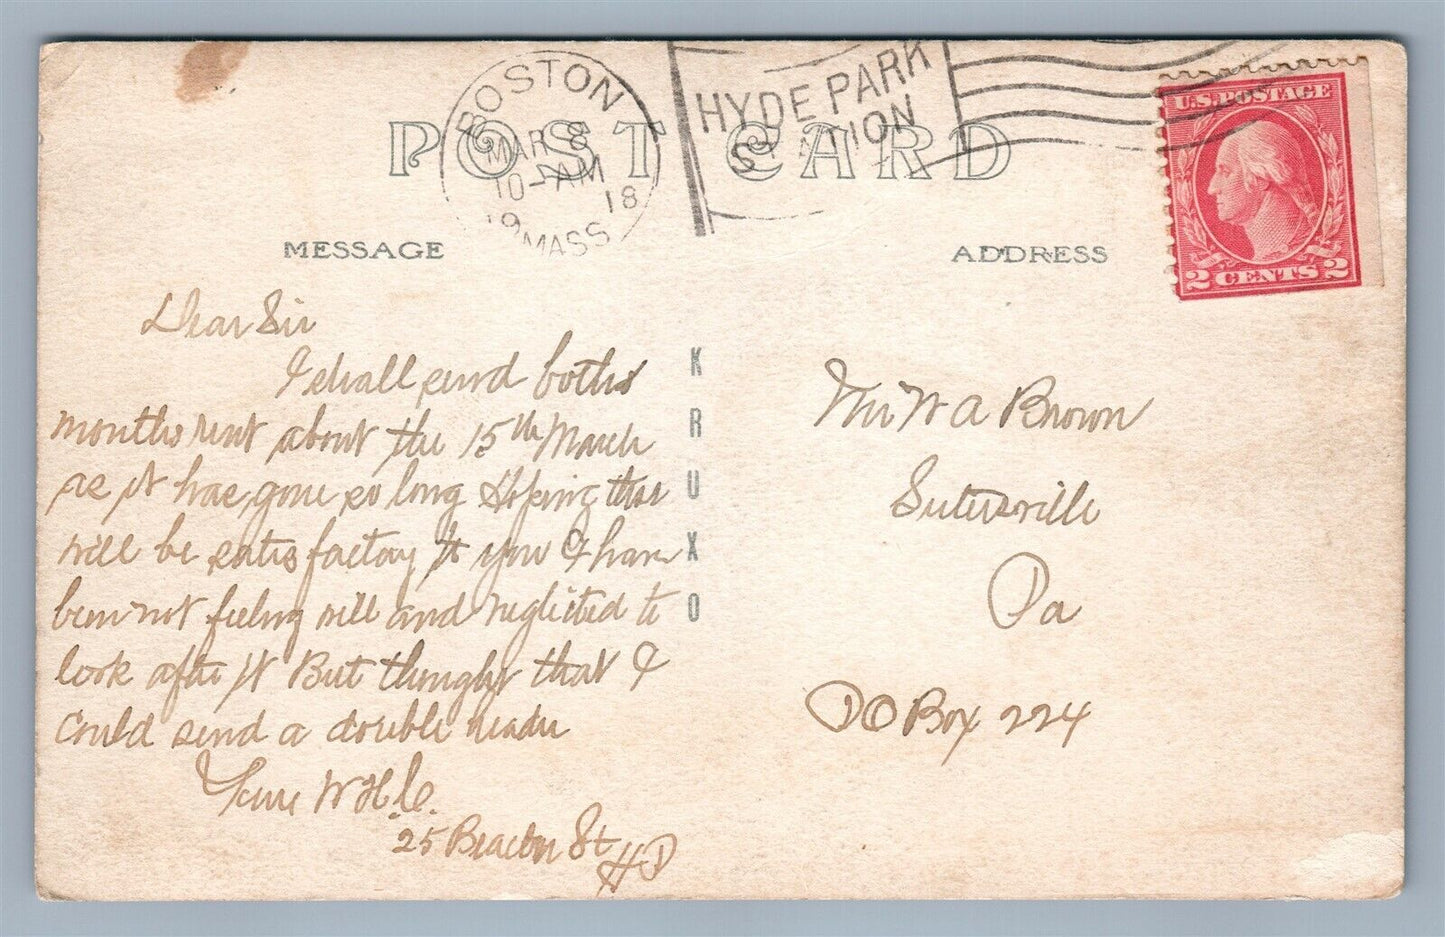 BOSTON
MAR 8
10-AM
1918
MASS
HYDE PARK
STATION
POST CARD
U.S. POSTAGE
2 CENTS 2
MESSAGE
ADDRESS
KRUXO
Dear Sir
I shall send boths
months rent about the 15th March
as it has gone so long Hoping this
will be satisfactory to you I have
been not feeling well and neglected to
look after it But thought that I
could send a double header
Yours W H C.
25 Beacon St
H P
Mr W A Brown
Sutersville
Pa
PO Box 224